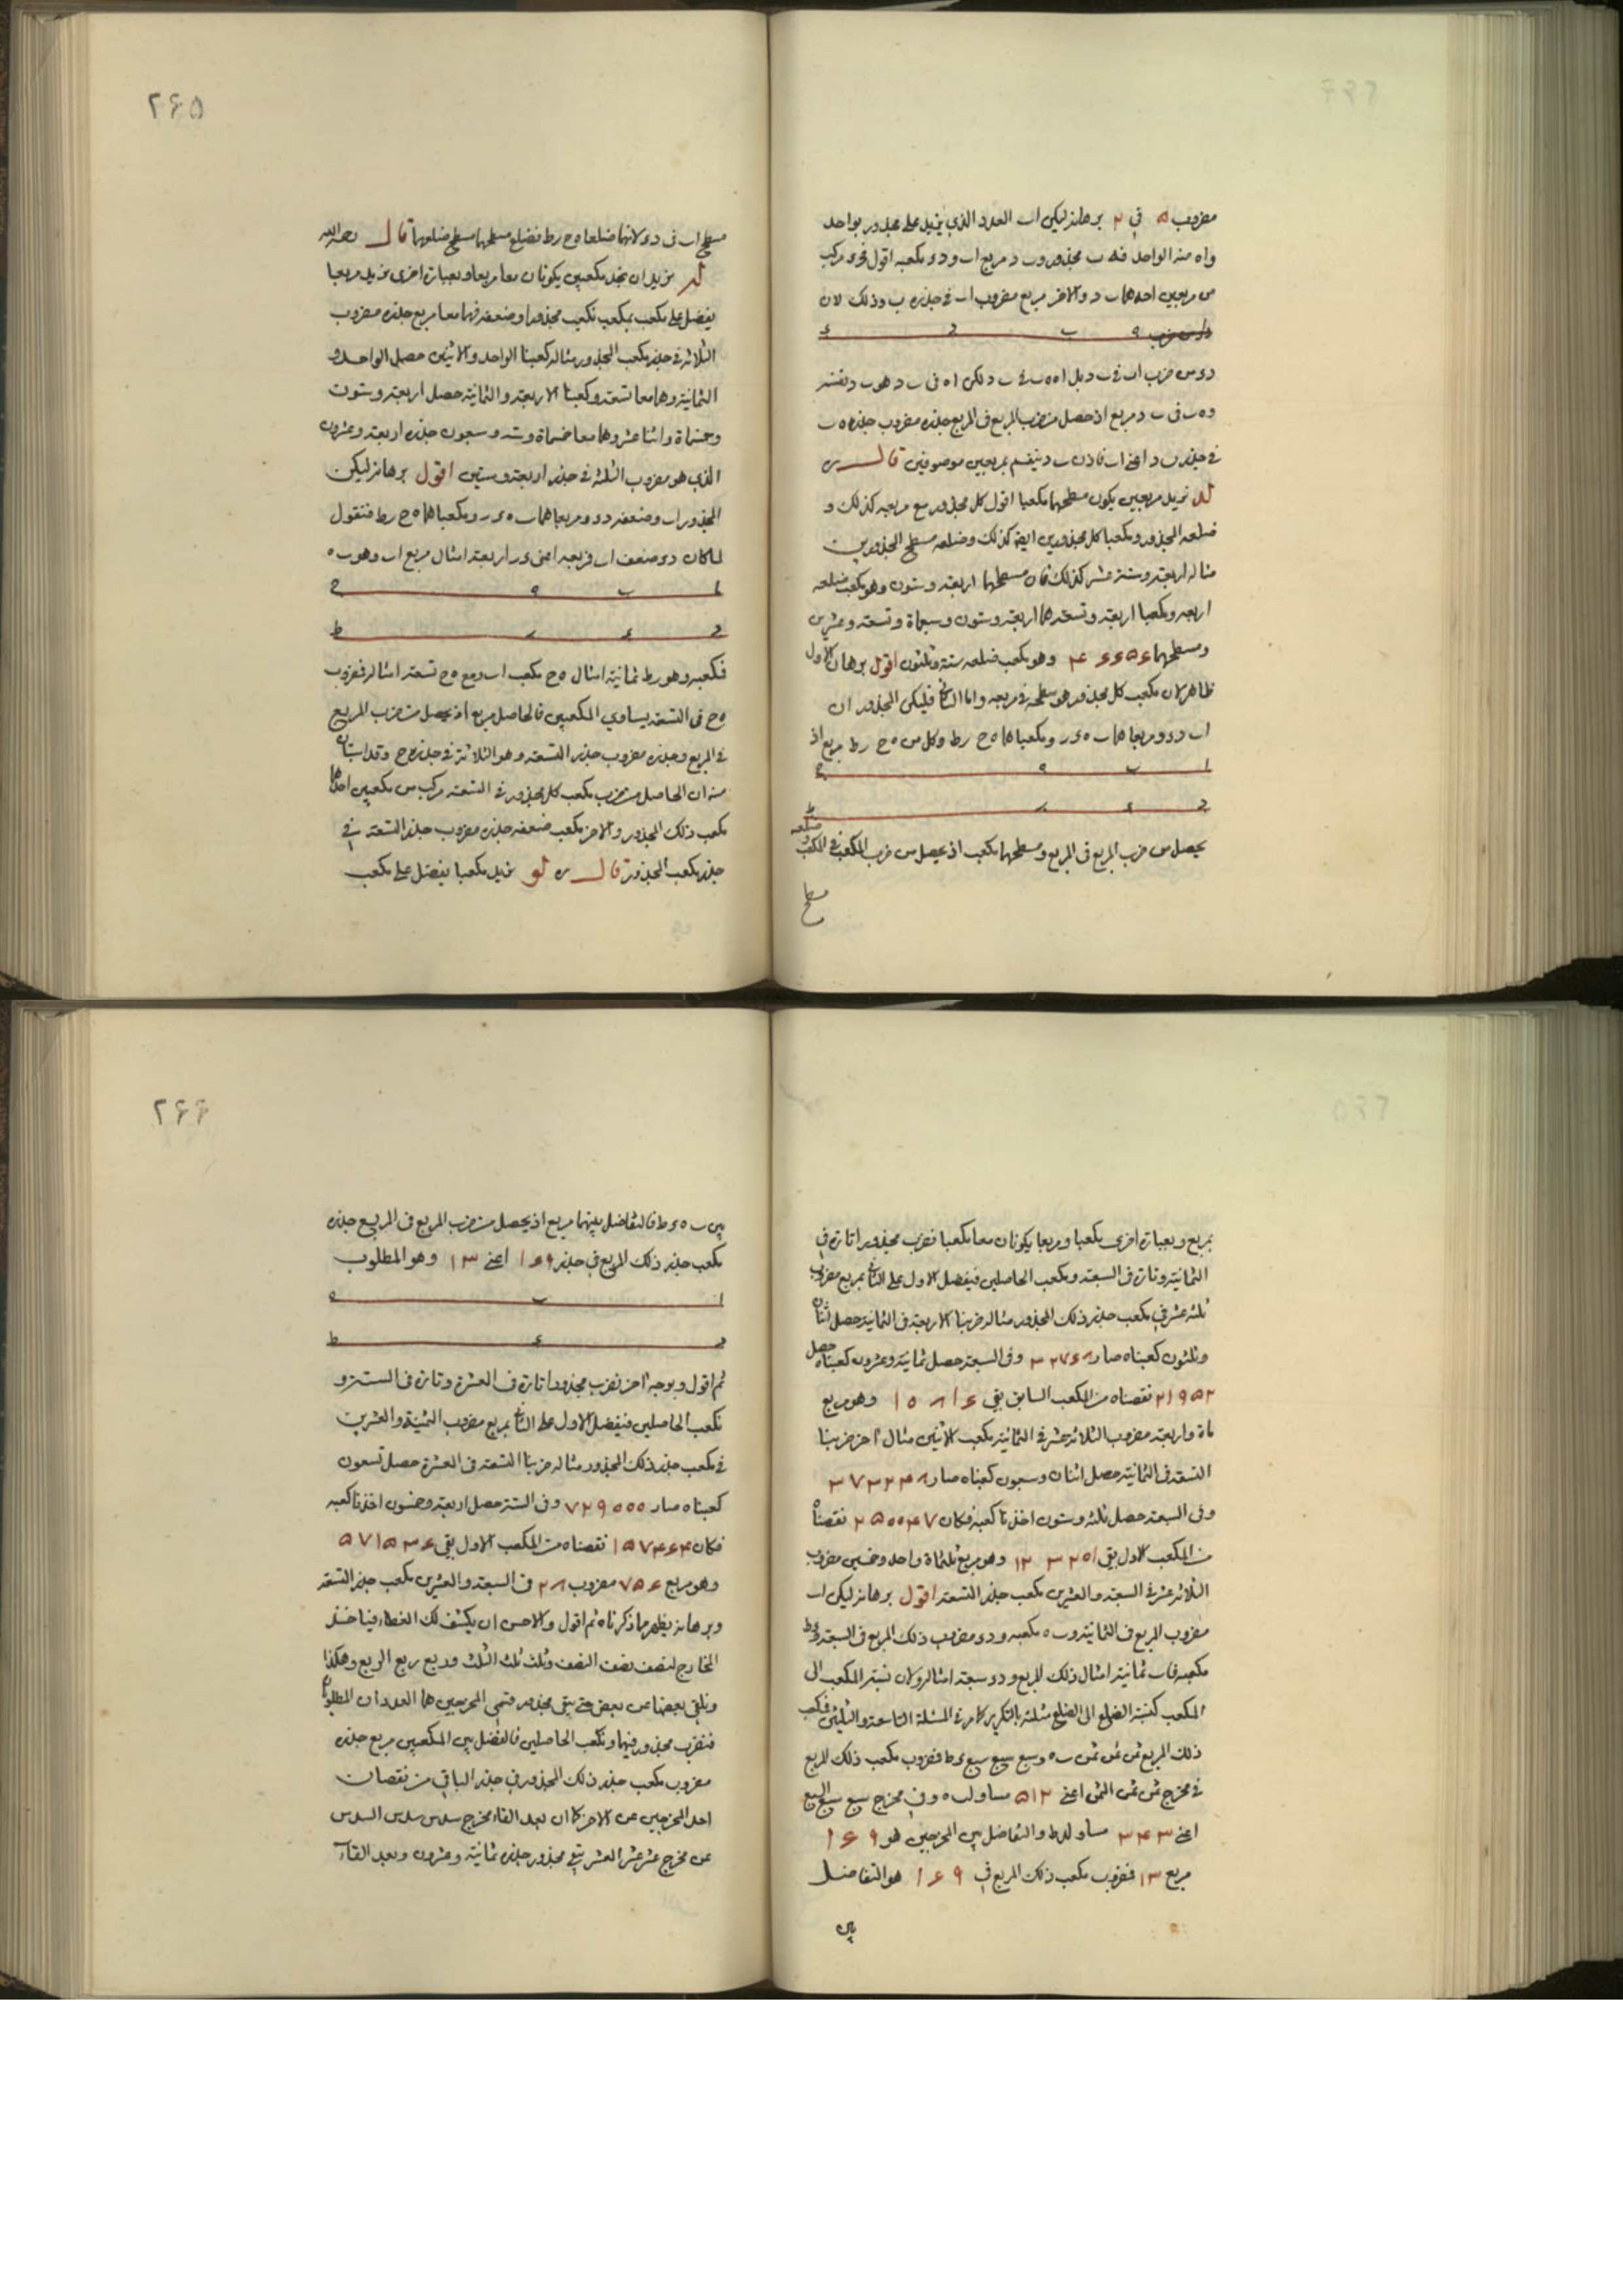 مضروب ۵ في ۲ برهانه ليكن اب العدد الذي يزيد على مجذور بواحد
واه منه الواحد فه ب مجذور وب د مربع اب ود ء مكعبه اقول فدء مركب
من مربعين احدهما ب د والاخر مربع مضروب اب في جذر ه ب وذلك لان
ه ب د ء
د ء من ضرب اب في ب د بل اه ه ب في ب د لكن اه في ب د هو ب د نفسه
و ه ب في ب د مربع اذ حصل من ضرب المربع في المربع جذره مضروب جذر ه ب
في جذر ب د اعني اب فاذن ب د ينقسم بمربعين موصوفين قال ره
له نريد مربعين يكون مسطحهما مكعبا اقول كل مجذور مع مربعه كذلك و
ضلعه المجذور ومكعبا كل مجذورين ايضا كذلك وضلعه مسطح المجذورين
مثاله اربعة وستة عشر كذلك فان مسطحهما اربعة وستون وهو مكعب ضلعه
اربعه ومكعبا اربعة وتسعة هما اربعة وستون وسبعماة وتسعة وعشرين
ومسطحهما ۴۶۶۵۶ وهو مكعب ضلعه ستة وثلثون اقول برهان الاول
ظاهر لان مكعب كل مجذور هو سطحه في مربعه واما الثاني فليكن المجذوران
اب دء ومربعاهما ب ه ء ر ومكعباهما ه ح رط وكل من ه ح رط مربع اذ
ا ب ه ح
د ء ر ط
يحصل من ضرب المربع في المربع ومسطحهما مكعب اذ يحصل من ضرب المكعب في المكعب
وضلعه
مسطح
۲۶۵
مسطح اب في دء لانهما ضلعا ه ح رط فضلع مسطحهما مسطح ضلعيهما قال رحمه الله
له نريد ان نجد مكعبين يكونان معا مربعا وبعبارة اخرى نريد مربعا
يفضل على مكعب بمكعب نكعب مجذورا وضعفه فهما معا مربع جذره مضروب
الثلاثة في جذر مكعب المجذور مثاله كعبنا الواحد والاثنين حصل الواحد و
الثمانية وهما معا تسعة وكعبنا الاربعة والثمانية حصل اربعة وستون
وخمسماة واثنا عشر وهما معا خمسماة وستة وسبعون جذره اربعة وعشرون
الذي هو مضروب الثلثة في جذر اربعة وستين اقول برهانه ليكن
المجذور اب وضعفه دء ومربعاهما ب ه ء ر ومكعباهما ه ح رط فنقول
لما كان دء ضعف اب فمربعه اعني ء ر اربعة امثال مربع اب وهو ب ه
ا ب ه ح
د ء ر ط
فمكعبه وهو رط ثمانية امثال ه ح مكعب اب ومع ه ح تسعة امثاله فضروب
ه ح في التسعة يساوي المكعبين فالحاصل مربع اذ يحصل من ضرب المربع
في المربع وجذره مضروب جذر التسعة وهو الثلاثة في جذر ه ح وقد استبان
منه ان الحاصل من ضرب مكعب كل مجذور في التسعة مركب من مكعبين احدهما
مكعب ذلك المجذور والاخر مكعب ضعفه جذره مضروب جذر التسعة في
جذر مكعب المجذور قال ره لو نريد مكعبا يفضل على مكعب
بمربع وبعبارة اخرى مكعبا ومربعا يكونان معا مكعبا فنضرب مجذورا تارة في
الثمانية وتارة في السبعة ونكعب الحاصلين فيفضل الاول على الثاني بمربع مضروب
ثلثة عشر في مكعب جذر ذلك المجذور مثاله ضربنا الاربعة في الثمانية حصل اثنان
وثلثون كعبناه صار ۳۲۷۶۸ وفي السبعة حصل ثمانية وعشرون كعبناه حصل
۲۱۹۵۲ نقصناه من المكعب السابق بقي ۱۰۸۱۶ وهو مربع
ماة واربعة مضروب الثلاثة عشر في الثمانية مكعب الاثنين مثال اخر ضربنا
التسعة في الثمانية حصل اثنان وسبعون كعبناه صار ۳۷۳۲۴۸
وفي السبعة حصل ثلثة وستون اخذنا كعبه فكان ۲۵۰۰۴۷ نقصناه
من المكعب الاول بقي ۱۲۳۲۰۱ وهو مربع ثلثماة واحد وخمسين مضروب
الثلاثة عشر في السبعة والعشرين مكعب جذر التسعة اقول برهانه ليكن اب
مضروب المربع في الثمانية وب ه مكعبه ودء مضروب ذلك المربع في السبعة وء ط
مكعبه فاب ثمانية امثال ذلك المربع ودء سبعة امثاله ولان نسبة المكعب الى
المكعب كنسبة الضلع الى الضلع مثلثة بالتكرير كما مر في المسئلة التاسعة والثلثين فمكعب
ذلك المربع ثمن ثمن ثمن ب ه وسبع سبع سبع ء ط فمضروب مكعب ذلك المربع
في مخرج ثمن ثمن الثمن اعني ۵۱۲ مساو لب ه وفي مخرج سبع سبع السبع
اعني ۳۴۳ مساو لء ط والتفاضل بين المخرجين هو ۱۶۹
مربع ۱۳ فمضروب مكعب ذلك المربع في ۱۶۹ هو التفاضل
بين
۲۶۶
بين ب ه ء ط فالتفاضل بينهما مربع اذ يحصل من ضرب المربع في المربع جذره
مكعب جذر ذلك المربع في جذر ۱۶۹ اعني ۱۳ وهو المطلوب
ا ب ه
د ء ط
ثم اقول وبوجه اخر نضرب مجذورا تارة في العشرة وتارة في الستة و
نكعب الحاصلين فيفضل الاول على الثاني بمربع مضروب الثمنية والعشرين
في مكعب جذر ذلك المجذور مثاله ضربنا التسعة في العشرة حصل تسعون
كعبناه صار ۷۲۹۰۰۰ وفي الستة حصل اربعة وخمسون اخذنا كعبه
فكان ۱۵۷۴۶۴ نقصناه من المكعب الاول بقي ۵۷۱۵۳۶
وهو مربع ۷۵۶ مضروب ۲۸ في السبعة والعشرين مكعب جذر التسعة
وبرهانه يظهر مما ذكرناه ثم اقول والاحسن ان يكشف لك الغطاء فيناخذ
المخارج لنصف نصف النصف وثلث ثلث الثلث وربع ربع الربع وهكذا
ونلقي بعضها من بعض حتى يبقى مجذور فتسمي المخرجين هما العددان المطلوبان
فنضرب مجذور فيهما ونكعب الحاصلين فالفضل بين المكعبين مربع جذره
مضروب مكعب جذر ذلك المجذور في جذر الباقي من نقصان
احد المخرجين من الاخر كما ان بعد القاء مخرج سدس سدس السدس
من مخرج عشر عشر العشر يبقى مجذور جذره ثمانية وعشرون وبعد القاء